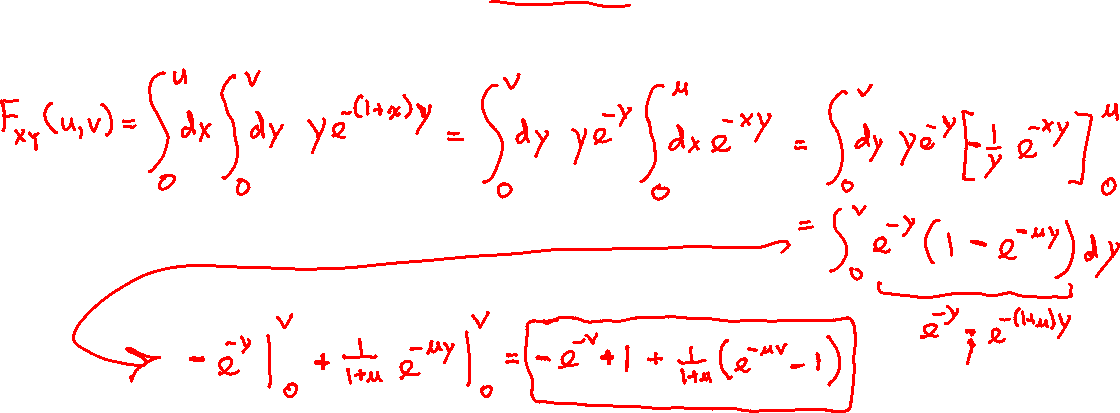 F_{XY}(u,v) = ∫_0^u dx ∫_0^v dy ye^{-(1+x)y} = ∫_0^v dy ye^{-y} ∫_0^u dx e^{-xy} = ∫_0^v dy ye^{-y} [-1/y e^{-xy}]_0^u
= ∫_0^v e^{-y} (1 - e^{-uy}) dy
e^{-y} - e^{-(1+u)y}
-e^{-y} |_0^v + 1/(1+u) e^{-uy} |_0^v = -e^{-v} + 1 + 1/(1+u) (e^{-uv} - 1)